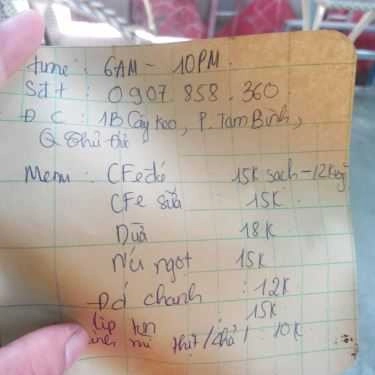 time : 6AM - 10PM
Sđt : 0907.858.360
Đ C : 1B Cây Keo, P. Tam Bình,
Q Thủ Đức
Menu : CFe đá 15K sạch - 12K
CFe sữa 15K
Dừa 18K
Nc ngọt 15K
Đá chanh : 12K
15K
mì thịt / chả / : 10K